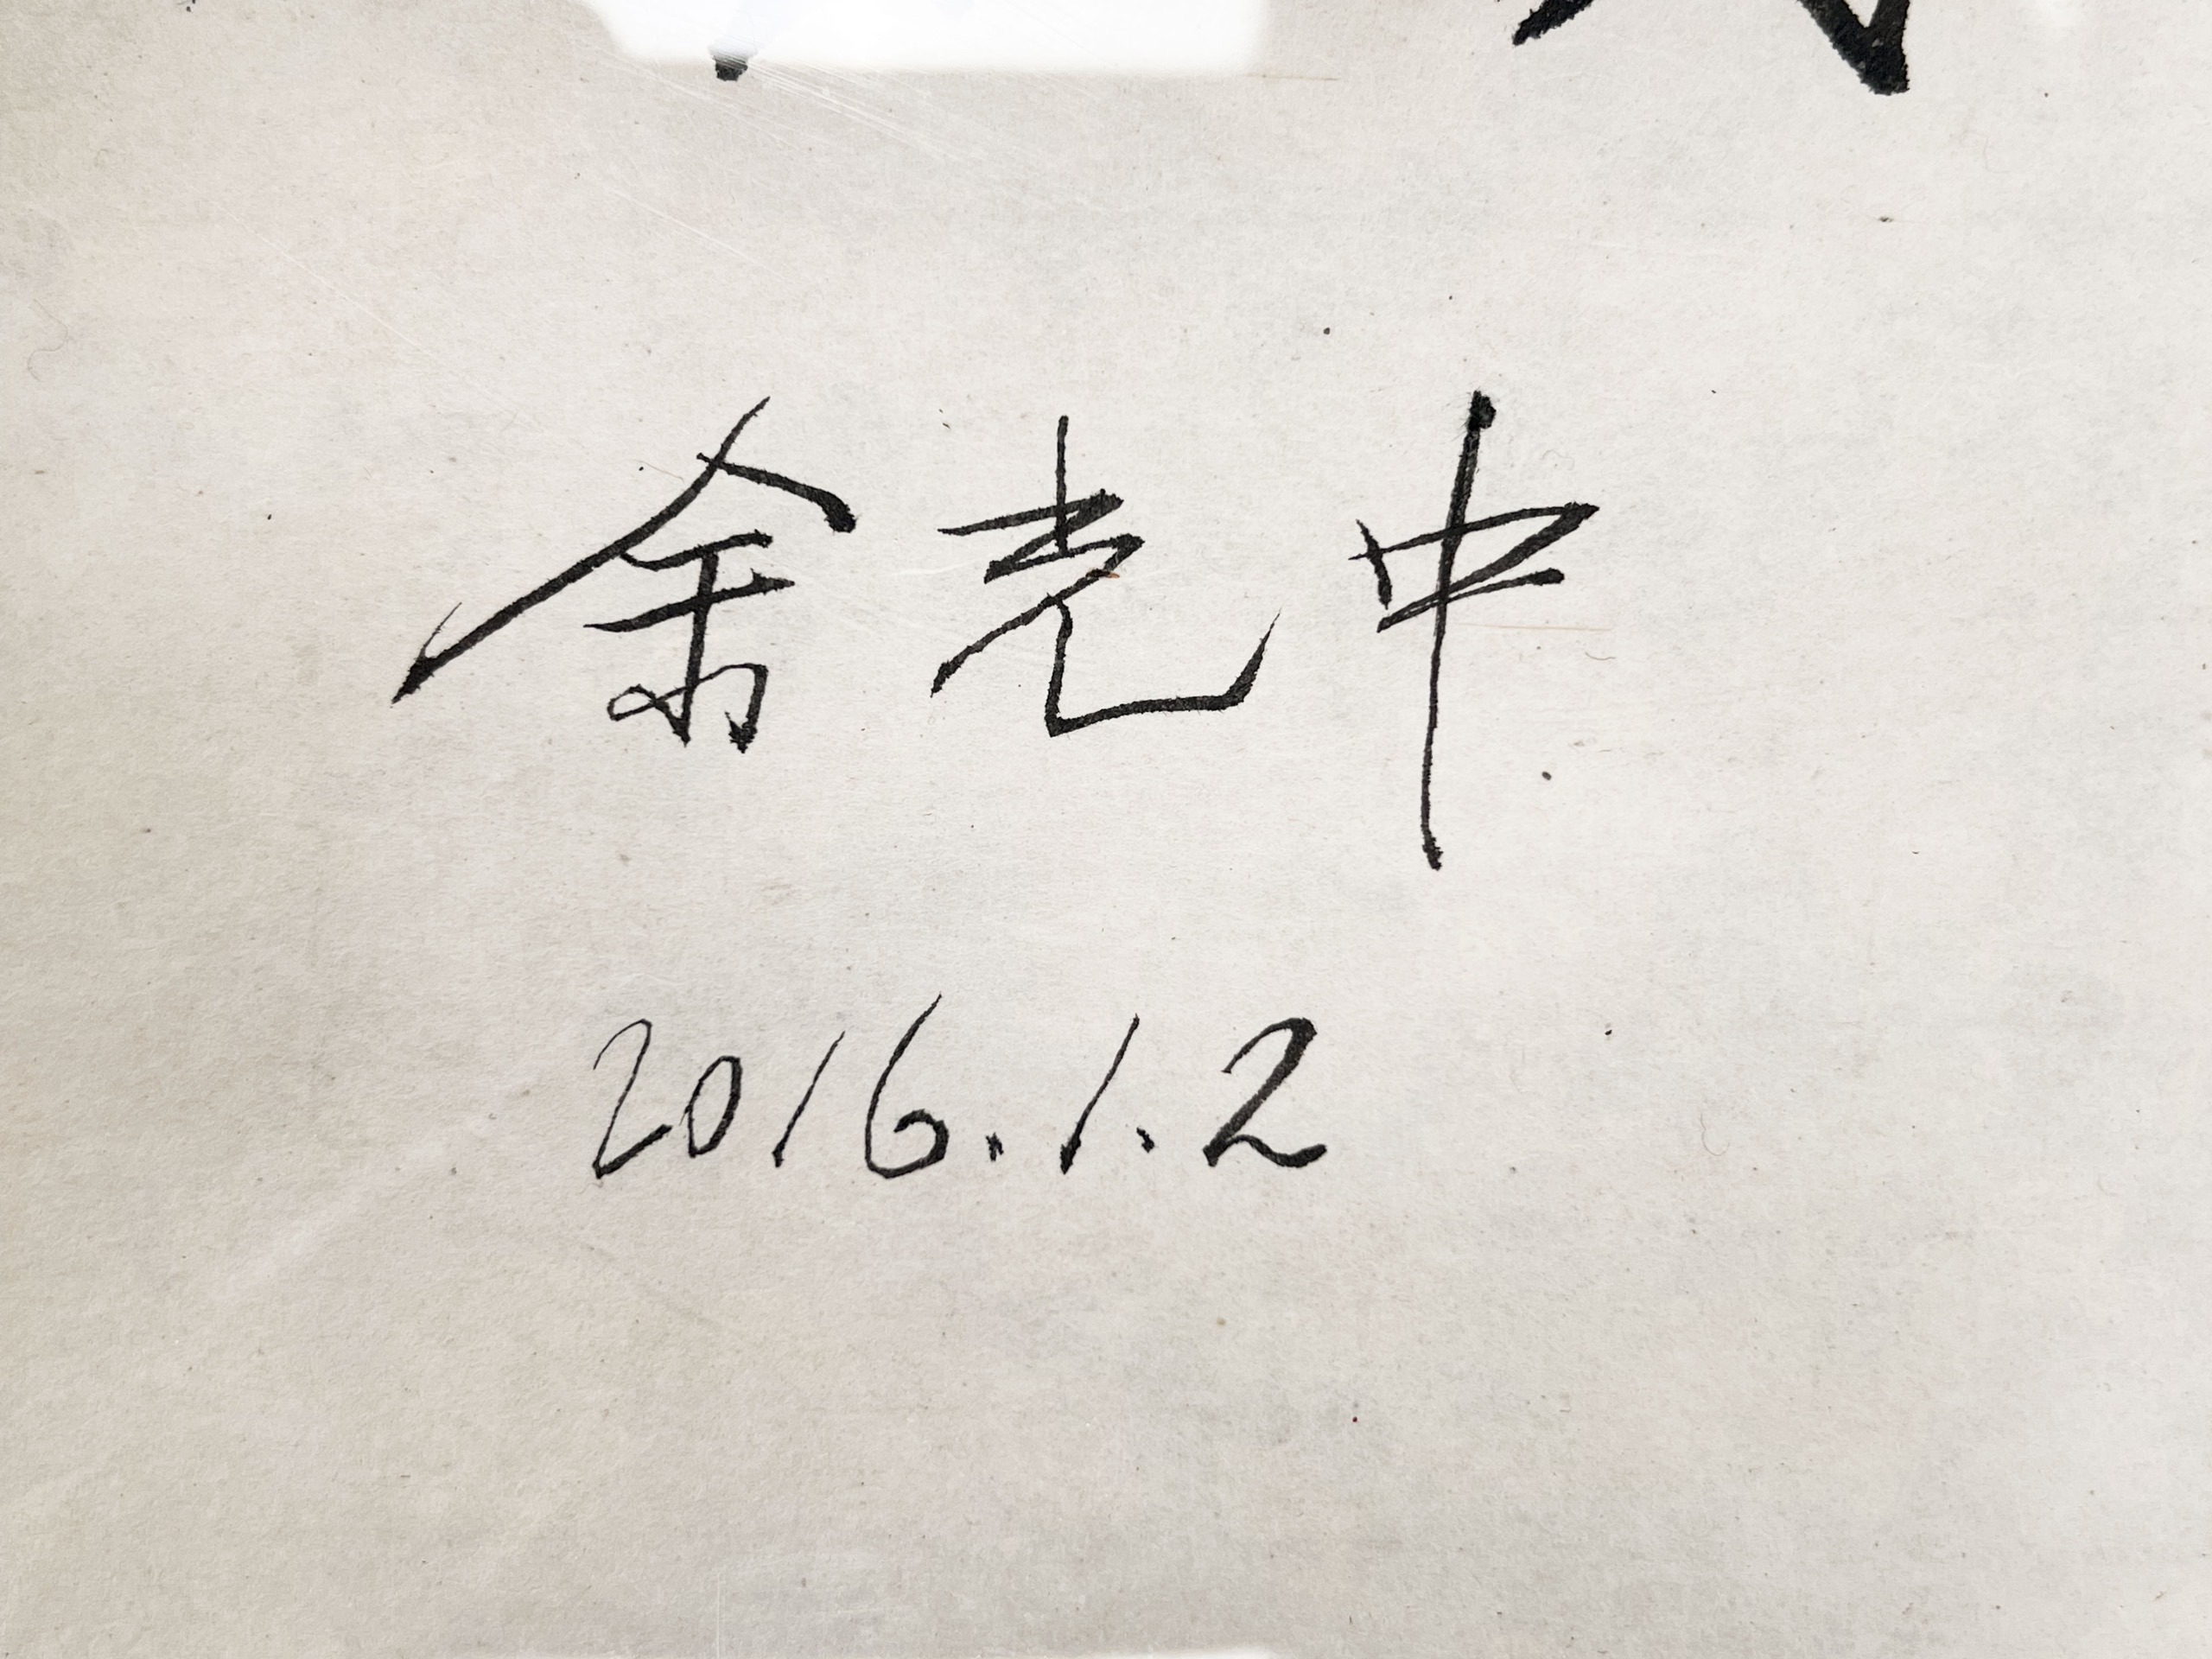 余光中
2016.1.2